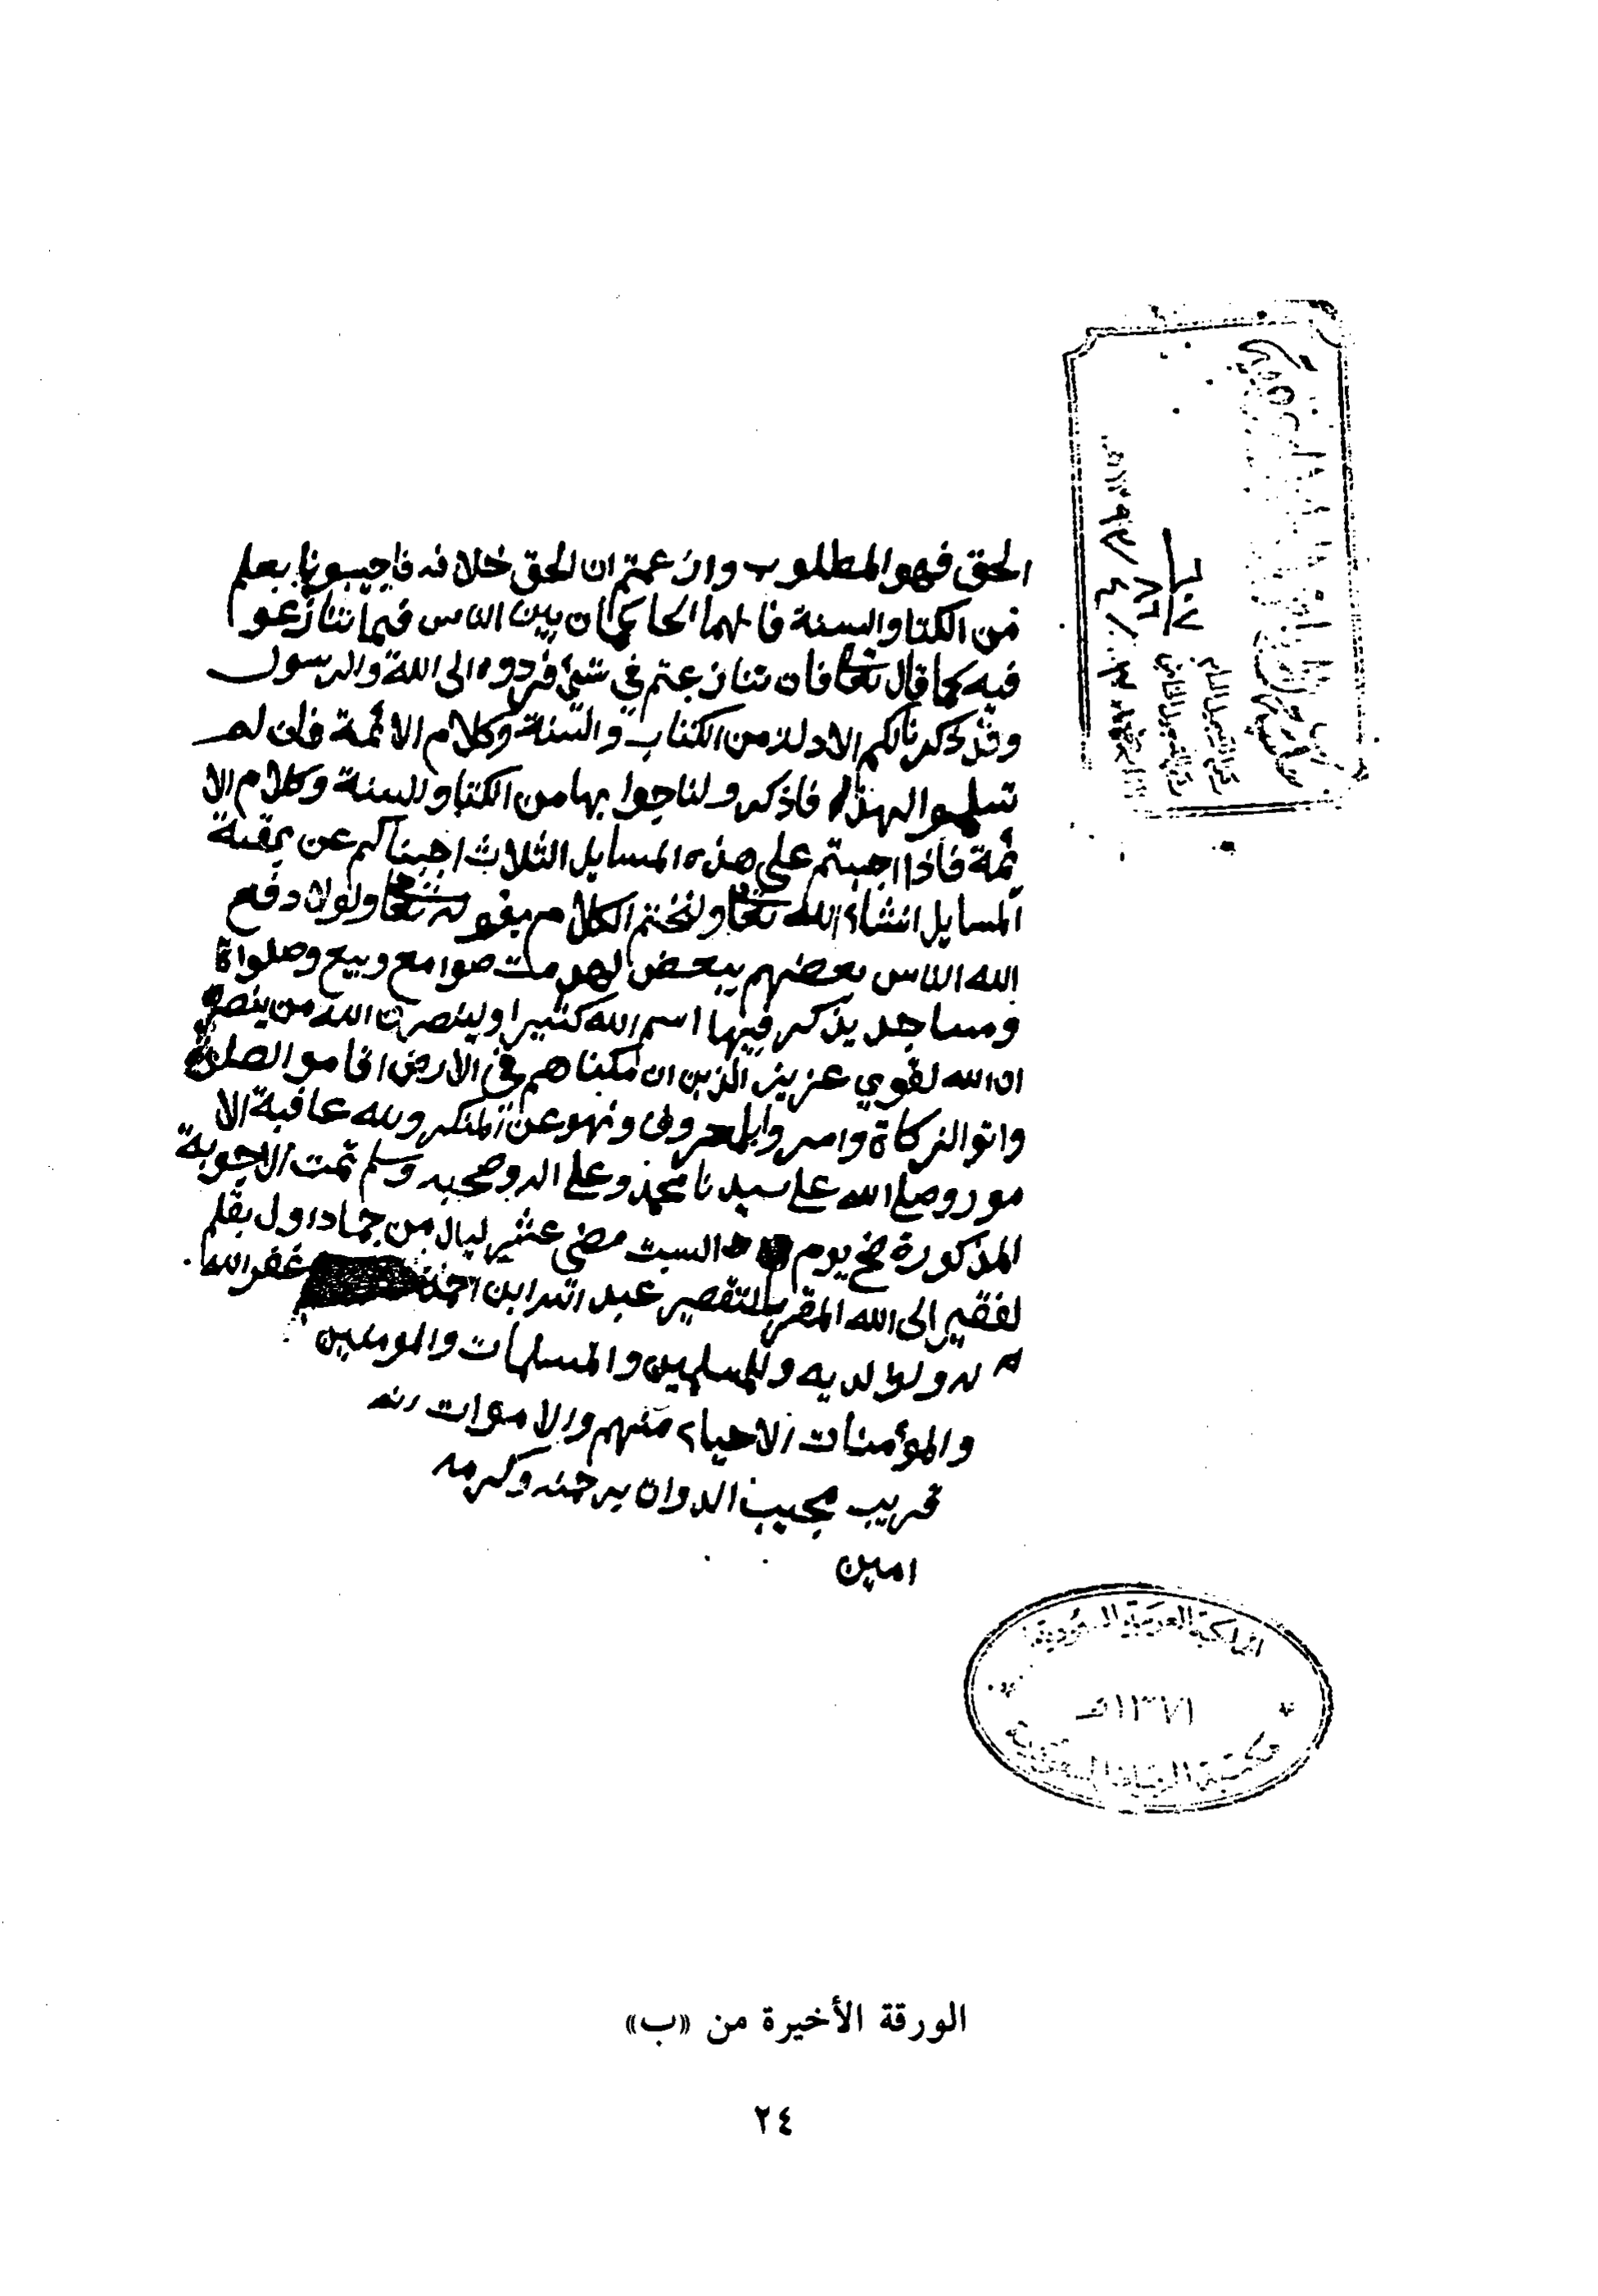 الحق فهو المطلوب وان زعمتم ان الحق خلافه فاجيبونا بعلم
من الكتاب والسنة فانهما الحاكمان بين الناس فيما تنازعو
فيه كما قال تعالى فان تنازعتم في شيء فردوه الى الله والرسول
وقد ذكرنا لكم الادلة من الكتاب والسنة وكلام الائمة فان لم
تسلموا لهذا فاذكرو لنا جوابها من الكتاب والسنة وكلام الا
ئمة فاذا اجبتم على هذه المسايل الثلاث اجبناكم عن بقية
المسايل انشاء الله تعالى ولنختم الكلام بقوله تعالى ولولا دفع
الله الناس بعضهم ببعض لهدمت صوامع وبيع وصلواة
ومساجد يذكر فيها اسم الله كثيرا ولينصرن الله من ينصره
ان الله لقوي عزيز الذين ان مكناهم في الارض اقامو الصلوة
واتو الزكاة وامرو بالمعروف ونهو عن المنكر ولله عاقبة الا
مور وصلى الله على سيدنا محمد وعلى اله وصحبه وسلم تمت الاجوبة
المذكورة ضح يوم السبت مضى عشر ليال من جماد اول بقلم
لفقير الى الله المقر بالتقصير عبد الله ابن احمد غفر الله
له ولوالديه وللمسلمين والمسلمات والمومنين
والمؤمنات الاحياء منهم والاموات انه
قريب مجيب الدوات برحمته وكرمه
امين
المملكة العربية السعودية
١٣٧١هـ
مكتبة الرياض السعودية
الورقة الأخيرة من «ب»
٢٤